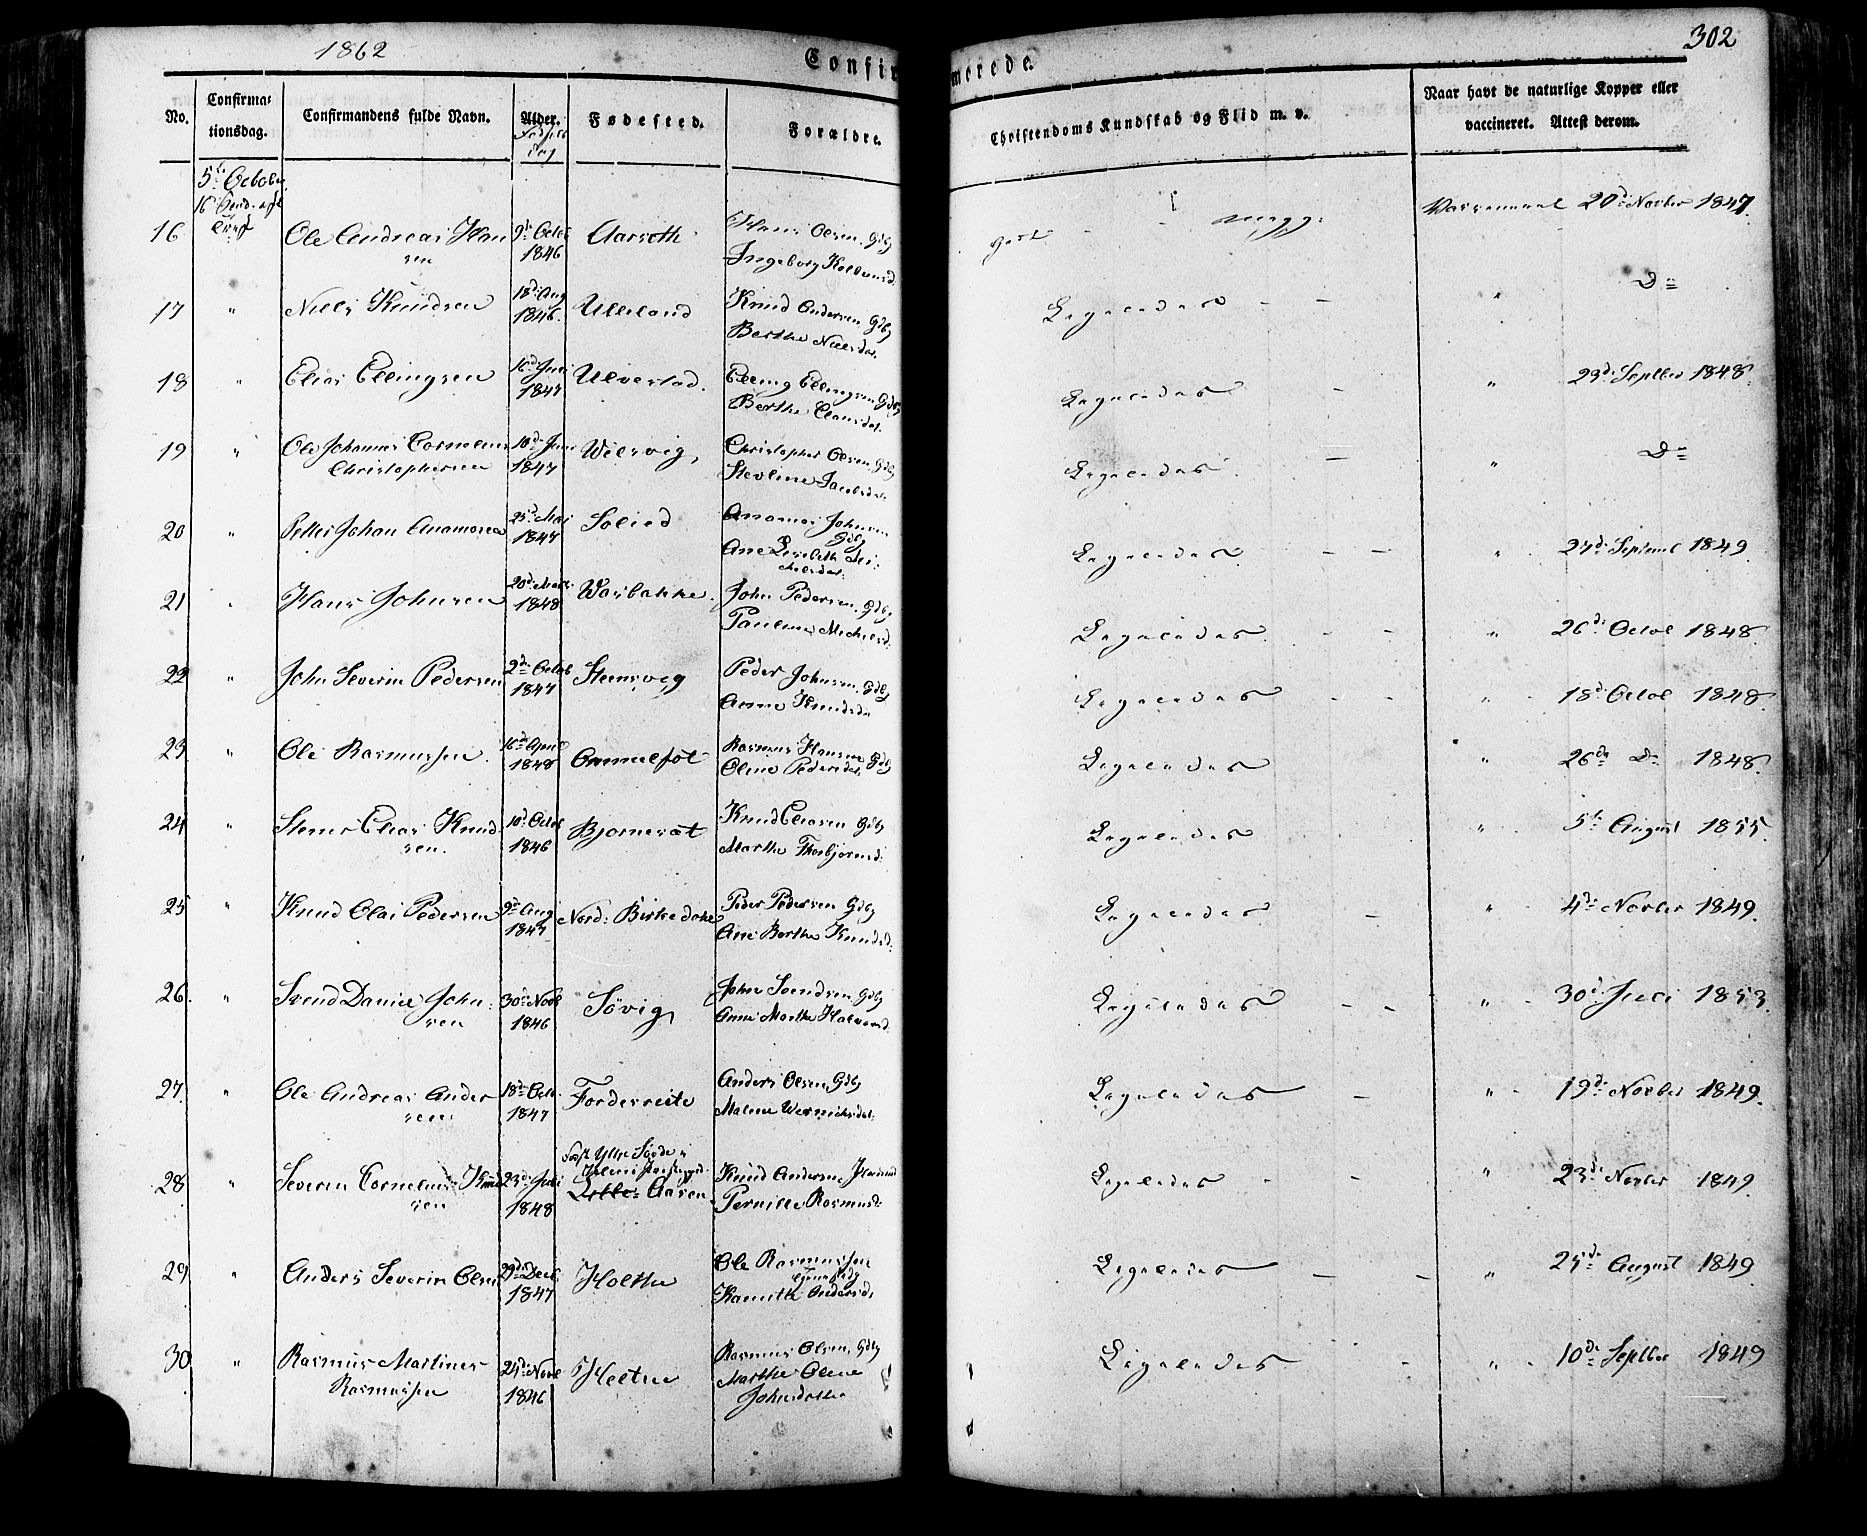 1862
302
Confirmerede.
No.
Confirma-
tionsdag.
Confirmandens fulde Navn.
Alder.
Fødested.
Forældre.
Christendoms Kundskab og Flid m. v.
Naar havt de naturlige Kopper eller
vaccineret. Attest derom.
5te October
16
Ole Andreas Han
sen
9de Octob
1846
Aarseth
Hans Olsen Gdbr
Ingeborg
20de Novber 1847.
17
"
Niels Knudsen
18de Aug
1846.
Ulleland
Knud Andersen Gdbr
Berthe Nielsdat.
Ligeledes - -
"
Do
18
"
Elias Ellingsen
16de Juni
1847
Ulvestad.
Elling Ellingsen Gdbr
Berthe Clausdat.
Ligeledes -
"
23de Septber 1848.
19
"
Ole Johannes Cornelius
Christophersen
10de Juni
1847
Wilsvig,
Christopher Olsen Gdbr
Stevline Jacobsdat.
Ligeledes -
"
Do
20
"
Petter Johan Anamosen
25de Mai
1847
Solied
Anamos Johnsen
Gdbr
Ane Lisebeth Mi-
chelsdat.
Ligeledes - -
"
27de Septemb 1849.
21
"
Hans Johnsen
20de Mart
1848
Warbakke.
John Pedersen. Gdbr
Pauline Michelsd.
Ligeledes - -
"
26de Octob 1848.
22
"
John Severin Pedersen
2de Octob
1847
Stensveg
Peder Johnsen. Gdbr
Anne Knudsda
Ligeledes - -
"
18de Octob 1848.
23
"
Ole Rasmussen.
16de April
1848
Gammelsæt
Rasmus Hansen Gdbr
Oline Pedersdat.
Ligeledes - -
"
26de Do 1848.
24
"
Stener Elias Knud
sen.
10de Octob
1846
Bjørnesæt
Knud Eliasen Gdbr
Marthe Thorbjørnsd.
Ligeledes
"
5te August 1855.
25
"
Knud Olai Pedersen
9de Aug
1847
Nord: Birkedahl
Peder Pedersen Gdbr
Ane Berthe Knudsd.
Ligeledes -
"
4de Novber 1849.
26.
"
Svend Daniel John
sen
30te Novb
1846
Søvig,
John Svendsen Gdbr
Anne Marthe Halvorsd.
Ligeledes - -
"
30de Juli 1853.
27.
"
Ole Andreas Ander
sen
18de Octo.
1847
Farderseite
Anders Olsen, Gdbr
Malene Wernichsdat.
Ligeledes -
"
19de Novber 1849.
28.
"
Severin Cornelius Knud
sen
23de Juli
1848
Aasen
Knud Andersen Huusmd
Pernille Rasmusd.
Ligeledes - -
"
23de Novber 1849.
29
"
Anders Severin Olsen
29de Decb.
1847
Holthe
Ole Rasmussen
Kanuthe Andersd.
Ligeledes - -
"
25de August 1849.
30
"
Rasmus Martinus
Rasmussen
24de Novb
1846
Heltne
Rasmus Olsen, Gdbr
Marthe Oline
Johnsdatter
Ligeledes - -
"
10de Septber 1849